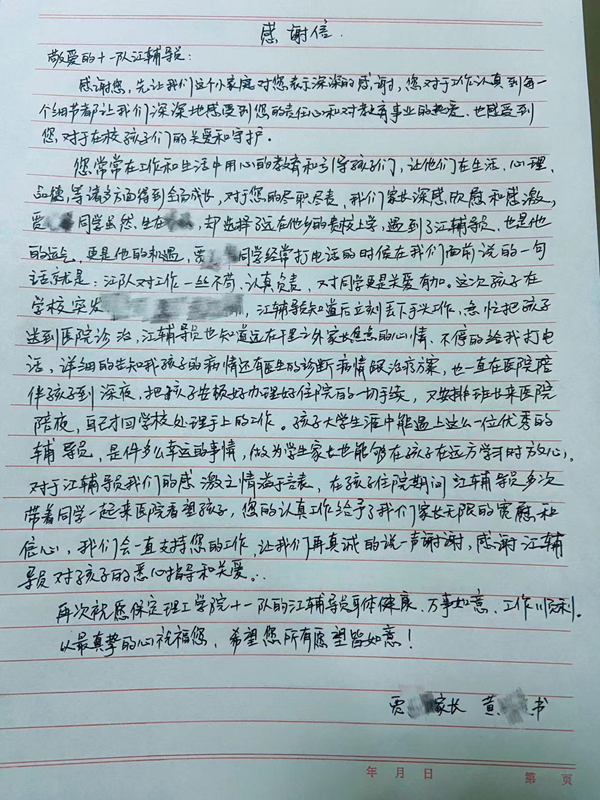 感谢信.
敬爱的十一队江辅导员:
感谢您,先让我们这个小家庭对您表示深深的感谢,您对于工作认真到每一
个细节都让我们深深地感受到您的责任心和对教育事业的热爱、也感受到
您,对于在校孩子们的关爱和守护.
您常常在工作和生活中用心的教育和引导孩子们,让他们在生活、心理、
品德,等诸多方面得到全面成长,对于您的尽职尽责,我们家长深感欣慰和感激,
贾 同学虽然、生在 ,却选择了远在他乡的贵校上学,遇到了江辅导员、也是他
的运气,更是他的机遇, 同学经常打电话的时候在我们面前说的一句
话就是:江队对工作一丝不苟、认真负责,对同学更是关爱有加。这次孩子在
学校突发 ,江辅导员知道后立刻丢下手头工作,急忙把孩子
送到医院诊治,江辅导员也知道远在千里之外家长焦急的心情、不停的给我打电
话,详细的告知我孩子的病情还有医生的诊断病情跟治疗方案,也一直在医院陪
伴孩子到深夜,把孩子安板好办理好住院的一切手续,又安排班长来医院
陪夜,自己才回学校处理手上的工作。孩子大学生涯中能遇上这么一位优秀的
辅导员,是件多么幸运的事情,做为学生家长也能够在孩子在远方学习时放心,
对于江辅导员我们的感激之情溢于言表,在孩子住院期间江辅导员多次
带着同学一起来医院看望孩子,您的认真工作给予了我们家长无限的宽慰和
信心,我们会一直支持您的工作,让我们再真诚的说一声谢谢,感谢江辅
导员对孩子的悉心指导和关爱。
再次祝愿保定理工学院十一队的江辅导员身体健康、万事如意、工作顺利.
以最真挚的心祝福您,希望您所有愿望皆如意!
贾 家长 黄 书
年 月 日 第 页